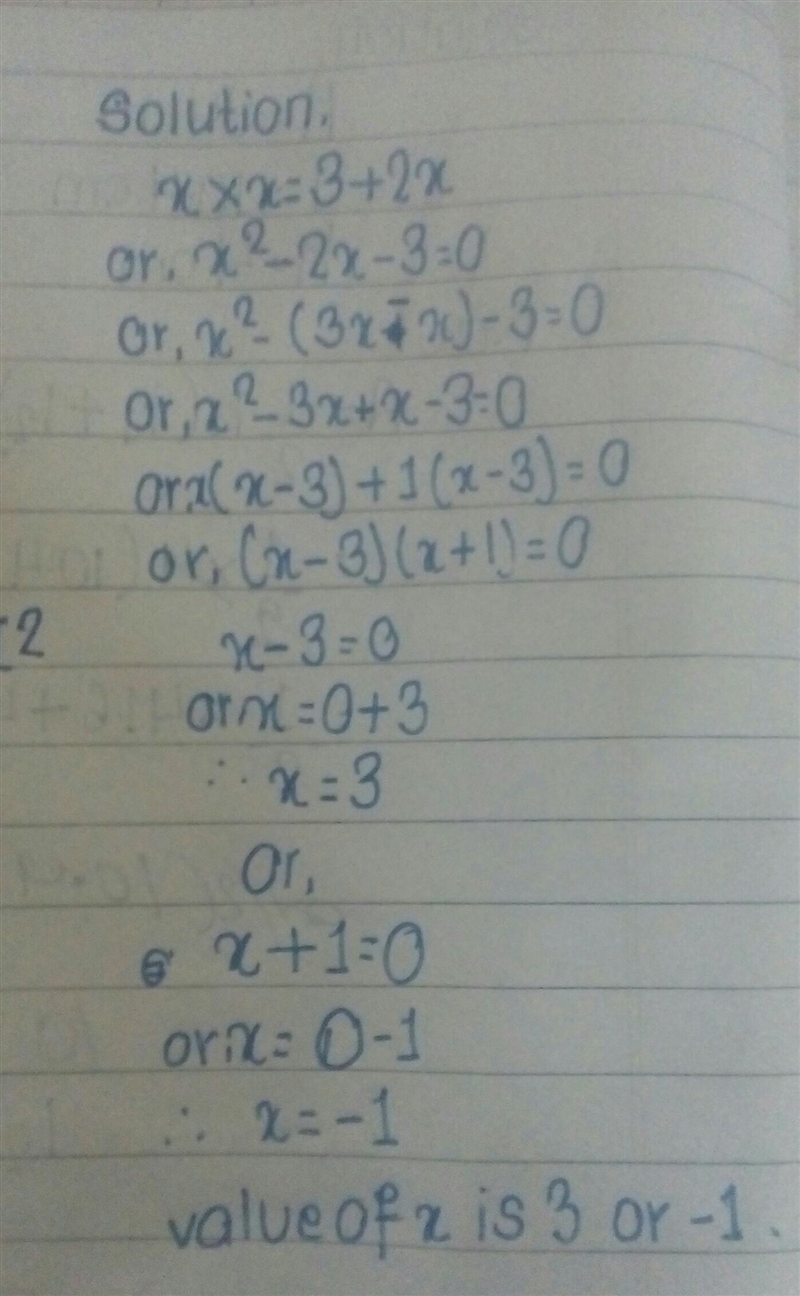 Solution.
x × x = 3 + 2x
or, x² - 2x - 3 = 0
or, x² - (3x - x) - 3 = 0
or, x² - 3x + x - 3 = 0
or x(x - 3) + 1(x - 3) = 0
or, (x - 3)(x + 1) = 0
2 x - 3 = 0
or x = 0 + 3
∴ x = 3
Or,
x + 1 = 0
or x = 0 - 1
∴ x = -1
value of x is 3 or -1.